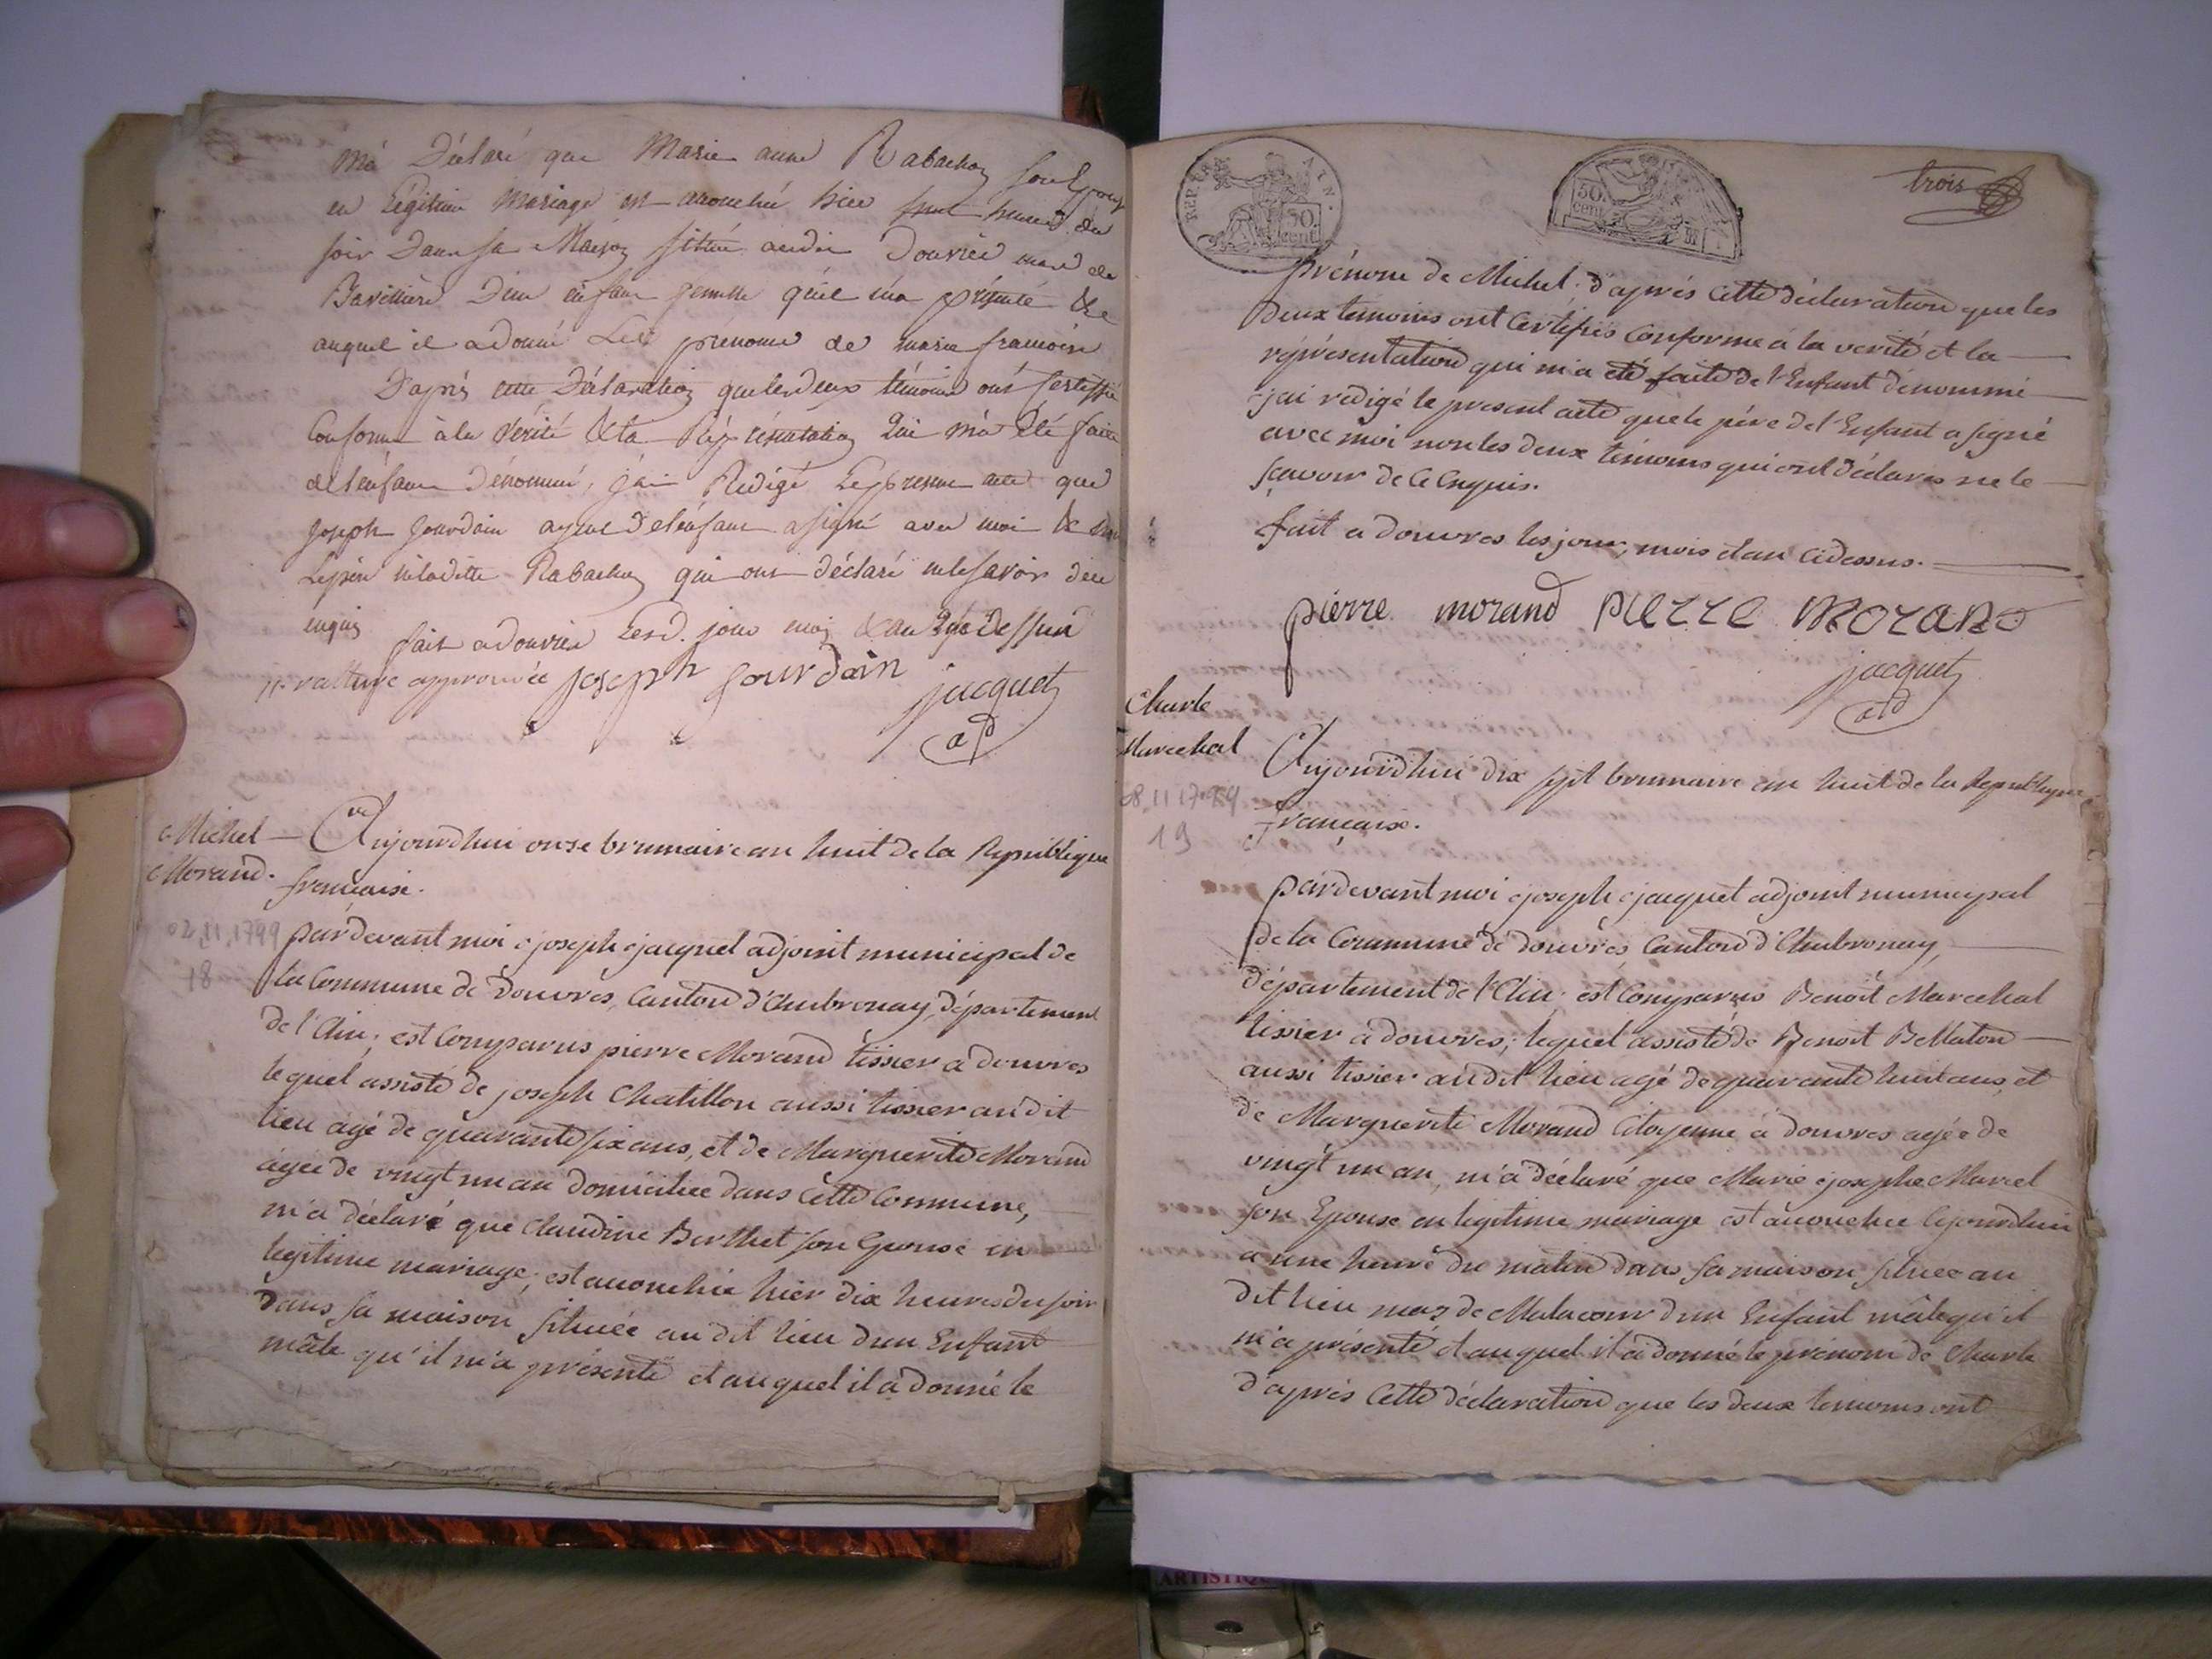 m'a Déclaré que Marie anne Rabachoz son Epouse
en Légitime Mariage est accouchée hier heures du
soir Dans sa Maison située audit Douvres mard de
Bavillière D'un enfant femelle qu'il m'a présenté &
auquel il a donné Les prénoms de marie francoise
D'après cette Déclaration que les deux témoins ont certiffié
Conforme à la vérité & la Représentation Qui m'a Eté faite
de l'enfant Dénommé, j'ai Redigé Le présent acte que
Joseph Jourdain ayeul de l'enfant a signé avec moi &
Le père Rabachoz qui ont déclaré ne le savoir de ce
enquis fait a douvres Lesd. jour mois & an que Dessus
rature approuvée joseph Jourdain jacquet
ad
Michel
Morand.
02.11.1799
18
Aujourdhui onse brumaire an huit de la République
française.
pardevant moi joseph jacquet adjoint municipal de
la Commune de Douvres, Canton d'Ambronay, département
de l'Ain; est Comparus pierre Morand tissier a douvres
lequel assisté de joseph Chatillon aussi tissier au dit
lieu agé de quarante six ans, et de Marguerite Morand
agée de vingt un an domiciliee dans cette Commune,
m'a déclaré que Claudine Berthet son Epouse en
legitime mariage; est accouchée hier dix heures du soir
dans sa maison située au dit lieu dun Enfant
mâle qu'il m'a présenté et auquel il a donné le
REP. FRA
50
cent
50.
cent
trois
prénom de Michel. d'après cette déclaration que les
deux temoins ont Certifiés Conforme a la verité et la
réprésentation qui m'a eté faite de l'Enfant dénommé
jai redigé le present acte que le père de l'Enfant a signé
avec moi non les deux temoins qui ont déclarés ne le
sçavoir de ce Enquis.
fait a douvres les jour, mois et an cidessus.
pierre morand pierre morand
jacquet
ad
Charle
Marechal
08.11.1799
19
Aujourdhui dix sept brumaire an huit de la Republique
française.
pardevant moi joseph jacquet adjoint municipal
de la Commune de douvres Canton d'Ambronay,
département de l'Ain; est Comparus Benoit Marechal
tissier a douvres; lequel assisté de Benoit Bellaton
aussi tissier au dit lieu agé de quarante huit ans, et
de Marguerite Morand Citoyenne a douvres agée de
vingt un an, m'a déclaré que Marie josephe Marcel
son Epouse en legitime mariage est accouchee aujourdhui
a une heure du matin dans sa maison située au
dit lieu mas de Malacour dun Enfant mâle qu'il
m'a présenté et auquel il a donné le prénom de Charle
d'après cette déclaration que les deux temoins ont